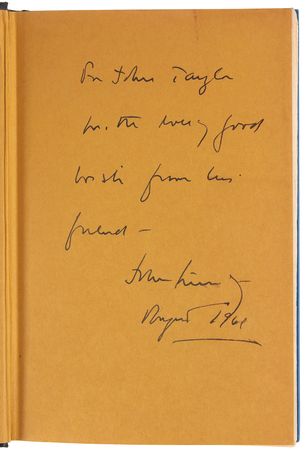 For John Taylor
with every good
wish from his
friend —
John
August 1961